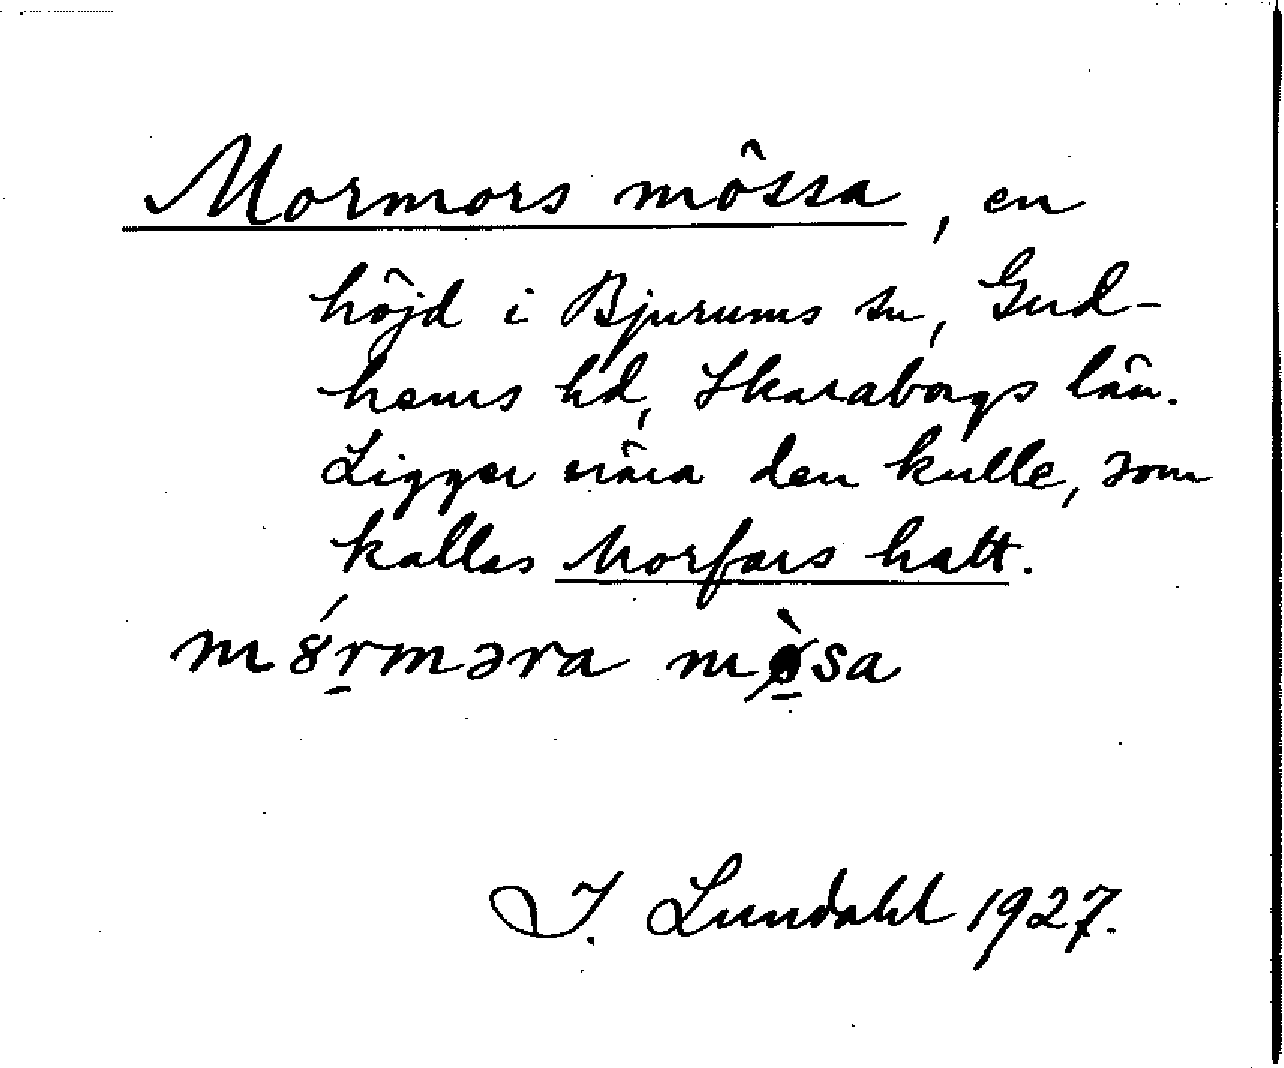 Mormors mössa, en
höjd i Bjurums sn, Gud-
hems hd, Skaraborgs län.
Ligger nära den kulle, som
kallas Morfars hatt.
m󠀠ȣ́r̠məra mø̠̀sa
I. Lundahl 1927.